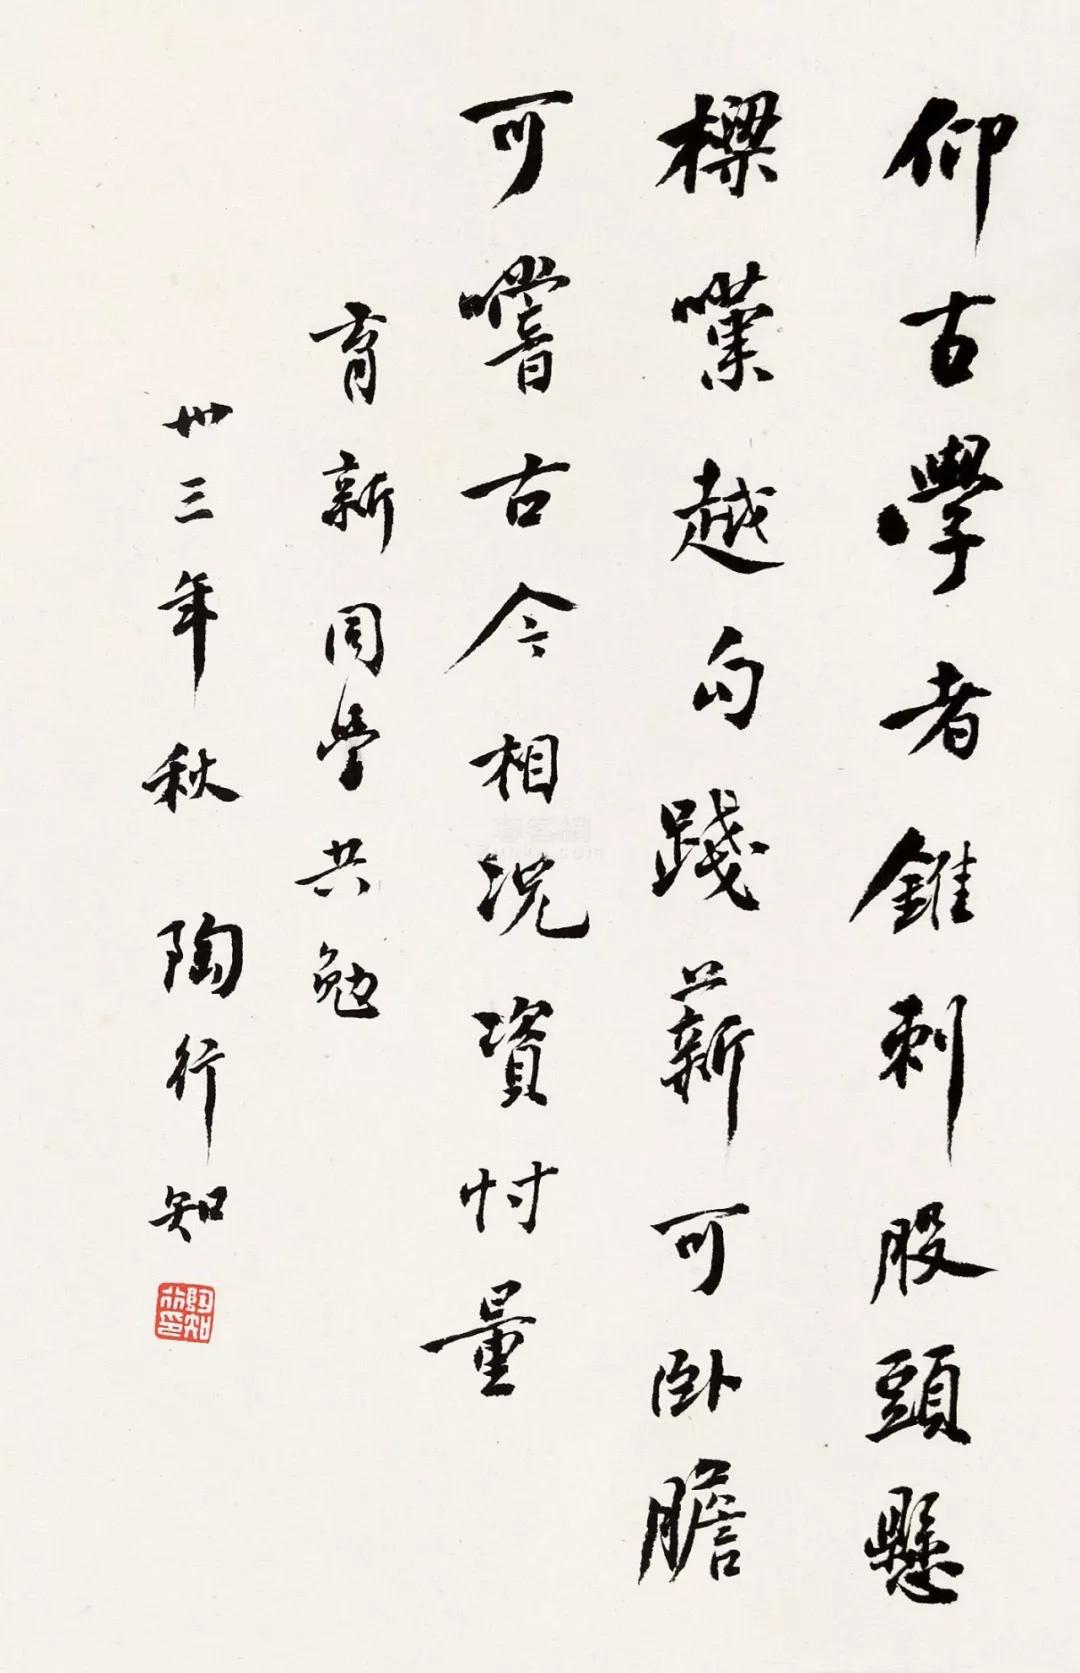 仰古學者錐刺股頭懸
樑嘆越勾踐薪可卧膽
可嘗古今相況資忖量
育新同學共勉
卅三年秋陶行知
陶行知印